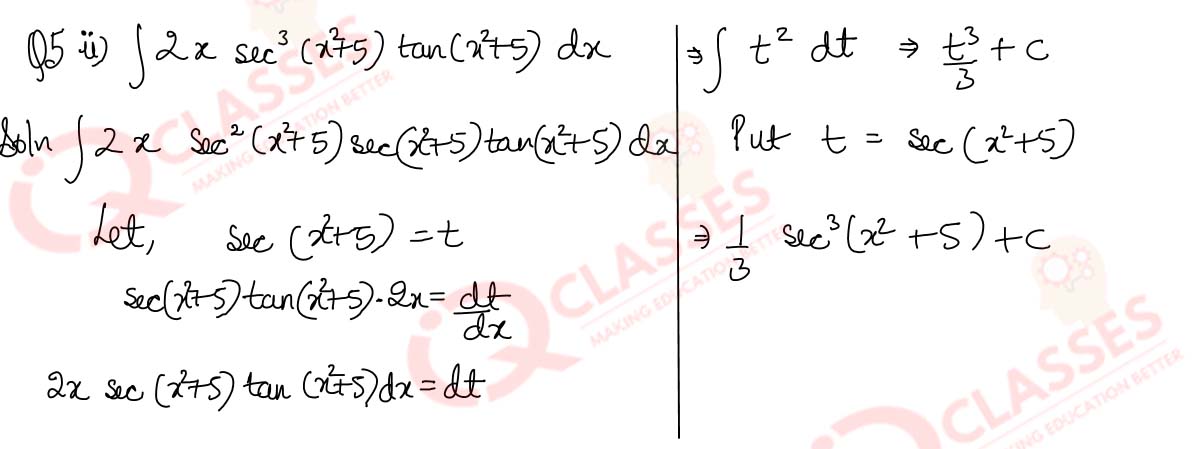 Q5 ii) ∫ 2x sec³ (x²+5) tan(x²+5) dx
Soln ∫ 2x sec² (x²+5) sec(x²+5) tan(x²+5) dx
Let, sec (x²+5) = t
sec(x²+5) tan(x²+5)·2x = dt/dx
2x sec (x²+5) tan (x²+5) dx = dt
⇒ ∫ t² dt ⇒ t³/3 + c
Put t = sec (x²+5)
⇒ 1/3 sec³(x² + 5) + c
IQ CLASSES
MAKING EDUCATION BETTER
IQ CLASSES
MAKING EDUCATION BETTER
CLASSES
MAKING EDUCATION BETTER